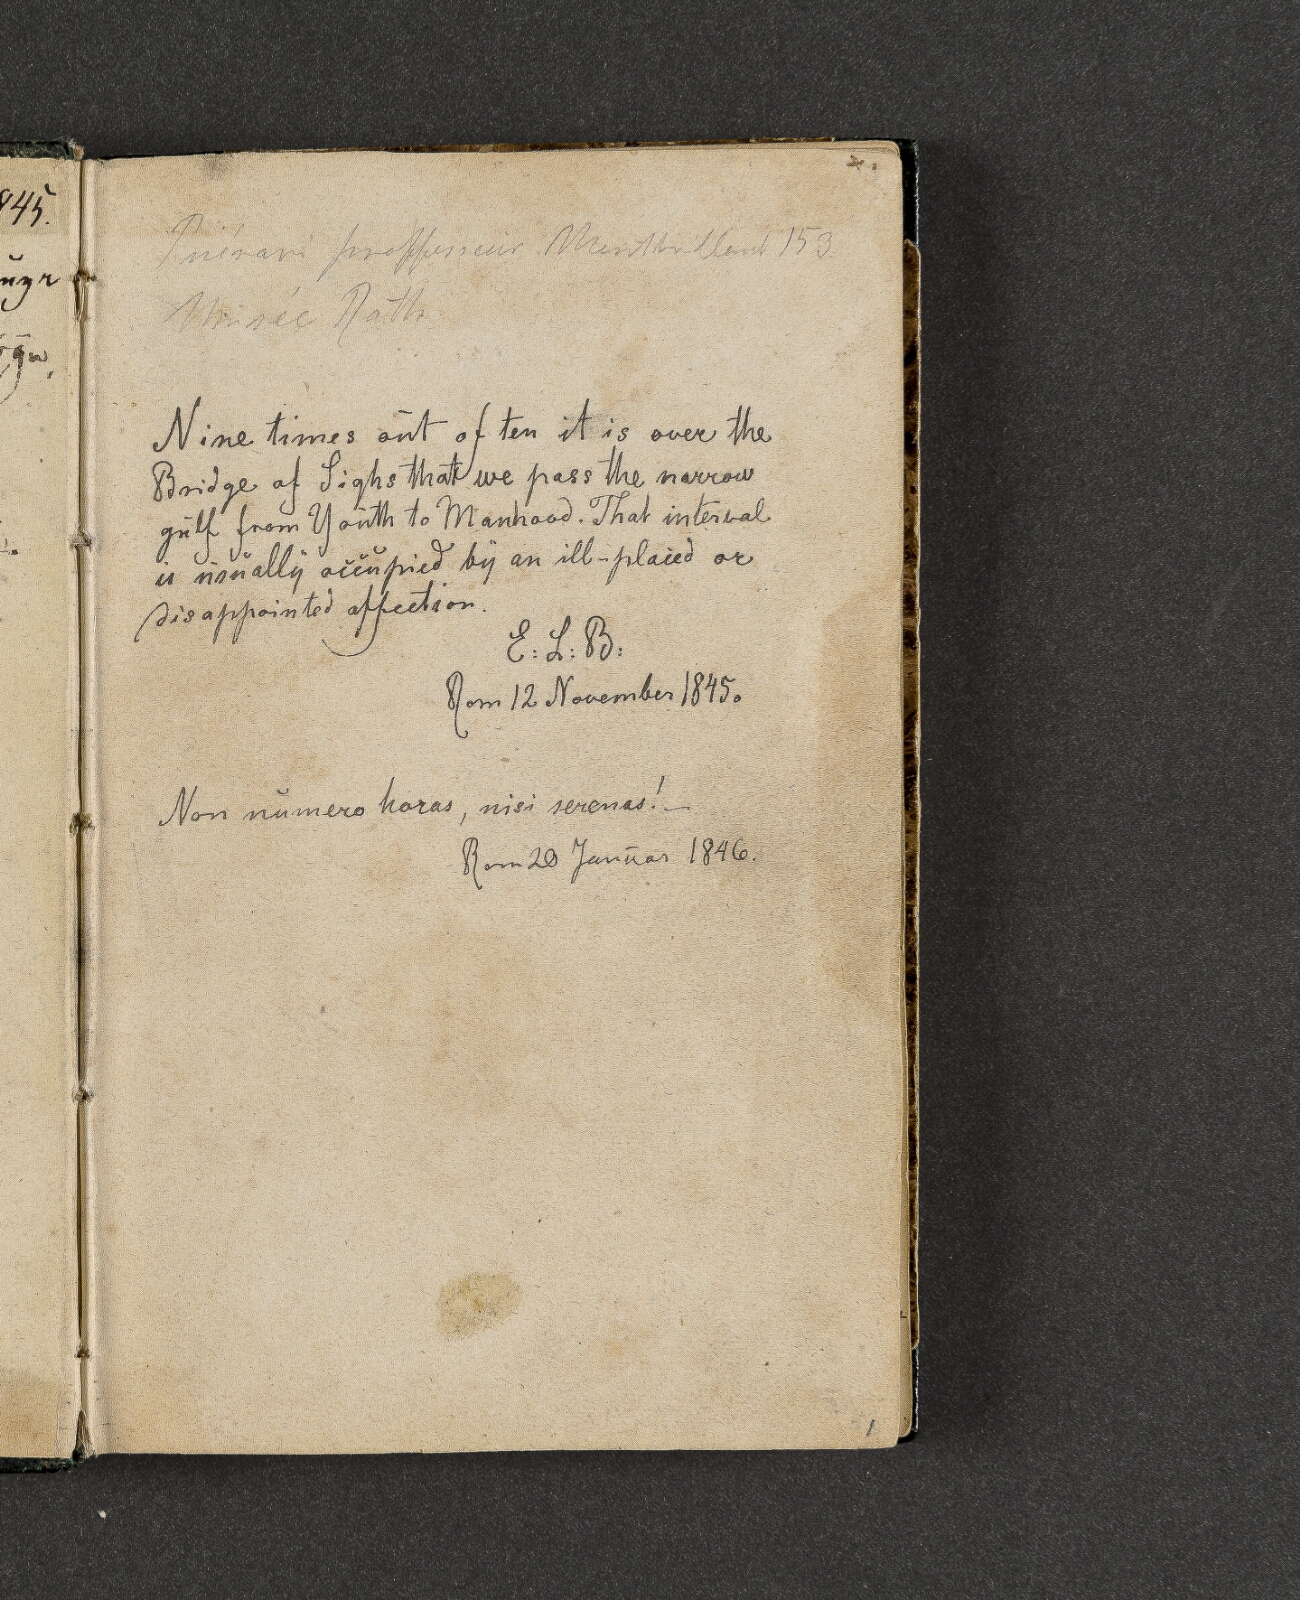 845.
professeur 153.
Musée Rath
Nine times out of ten it is over the
Bridge of Sighs that we pass the narrow
gulf from Youth to Manhood. That interval
is usually occupied by an ill-placed or
disappointed affection.
E: L: B:
Rom 12 November 1845.
Non numero horas, nisi serenas! —
Rom 20 Januar 1846.
1